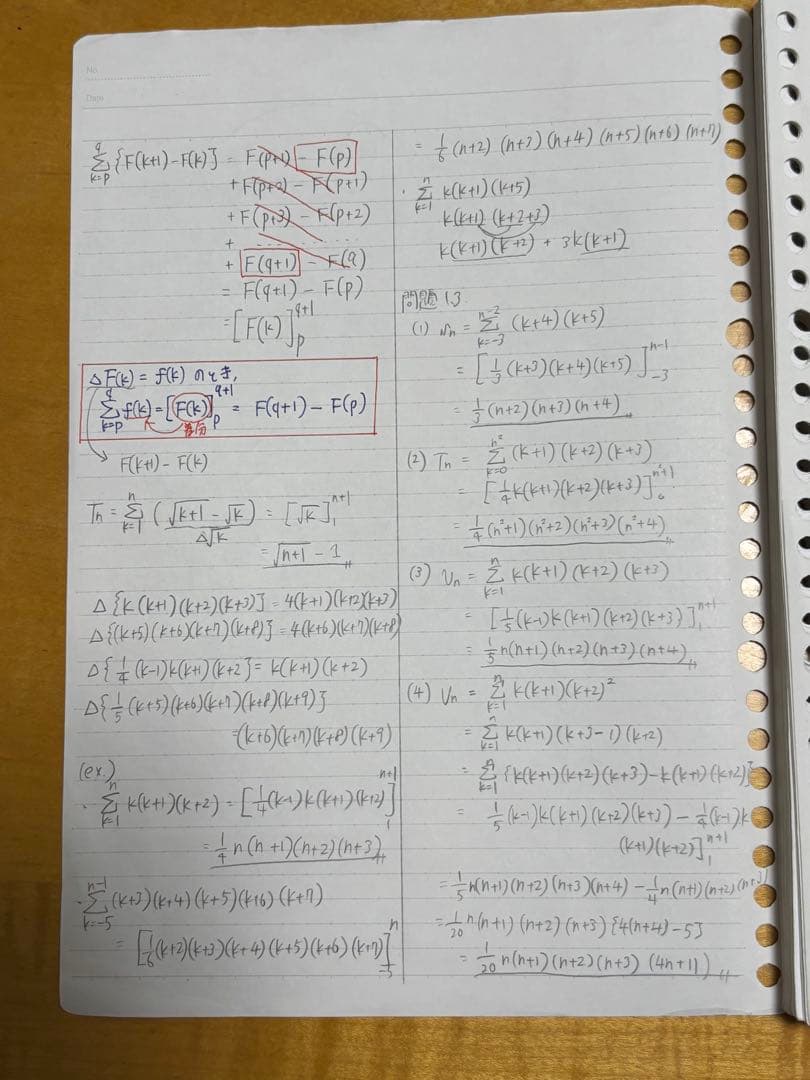 No.
Date
\sum_{k=p}^{q} {F(k+1) - F(k)} = F(p+1) - F(p)
+ F(p+2) - F(p+1)
+ F(p+3) - F(p+2)
+ ..........
+ F(q+1) - F(q)
= F(q+1) - F(p)
= [F(k)]_{p}^{q+1}
ΔF(k) = f(k) のとき,
\sum_{k=p}^{q} f(k) = [F(k)]_{p}^{q+1} = F(q+1) - F(p)
差分
F(k+1) - F(k)
Tn = \sum_{k=1}^{n} (√k+1 - √k) = [√k]_{1}^{n+1}
Δ√k
= √n+1 - 1
Δ{k(k+1)(k+2)(k+3)} = 4(k+1)(k+2)(k+3)
Δ{(k+5)(k+6)(k+7)(k+8)} = 4(k+6)(k+7)(k+8)
Δ{1/4 (k-1)k(k+1)(k+2} = k(k+1)(k+2)
Δ{1/5 (k+5)(k+6)(k+7)(k+8)(k+9)}
=(k+6)(k+7)(k+8)(k+9)
(ex.)
・\sum_{k=1}^{n} k(k+1)(k+2) = [1/4 (k-1)k(k+1)(k+2)]_{1}^{n+1}
= 1/4 n(n+1)(n+2)(n+3)
・\sum_{k=-5}^{n-1} (k+3)(k+4)(k+5)(k+6)(k+7)
= [1/6 (k+2)(k+3)(k+4)(k+5)(k+6)(k+7)]_{-5}^{n}
= 1/6 (n+2)(n+3)(n+4)(n+5)(n+6)(n+7)
・\sum_{k=1}^{n} k(k+1)(k+5)
k(k+1)(k+2+3)
k(k+1)(k+2) + 3k(k+1)
問題1.3
(1) = \sum_{k=-3}^{n-2} (k+4)(k+5)
= [1/3 (k+3)(k+4)(k+5)]_{-3}^{n-1}
= 1/3 (n+2)(n+3)(n+4)
(2) Tn = \sum_{k=0}^{n²} (k+1)(k+2)(k+3)
= [1/4 k(k+1)(k+2)(k+3)]_{0}^{n²+1}
= 1/4 (n²+1)(n²+2)(n²+3)(n²+4)
(3) Un = \sum_{k=1}^{n} k(k+1)(k+2)(k+3)
= [1/5 (k-1)k(k+1)(k+2)(k+3)]_{1}^{n+1}
= 1/5 n(n+1)(n+2)(n+3)(n+4)
(4) Un = \sum_{k=1}^{n} k(k+1)(k+2)²
= \sum_{k=1}^{n} k(k+1)(k+3-1)(k+2)
= \sum_{k=1}^{n} {k(k+1)(k+2)(k+3) - k(k+1)(k+2)}
= 1/5 (k-1)k(k+1)(k+2)(k+3) - 1/4 (k-1)k
(k+1)(k+2)]_{1}^{n+1}
= 1/5 n(n+1)(n+2)(n+3)(n+4) - 1/4 n(n+1)(n+2)(n+3)
= 1/20 n(n+1)(n+2)(n+3){4(n+4)-5}
= 1/20 n(n+1)(n+2)(n+3)(4n+11)